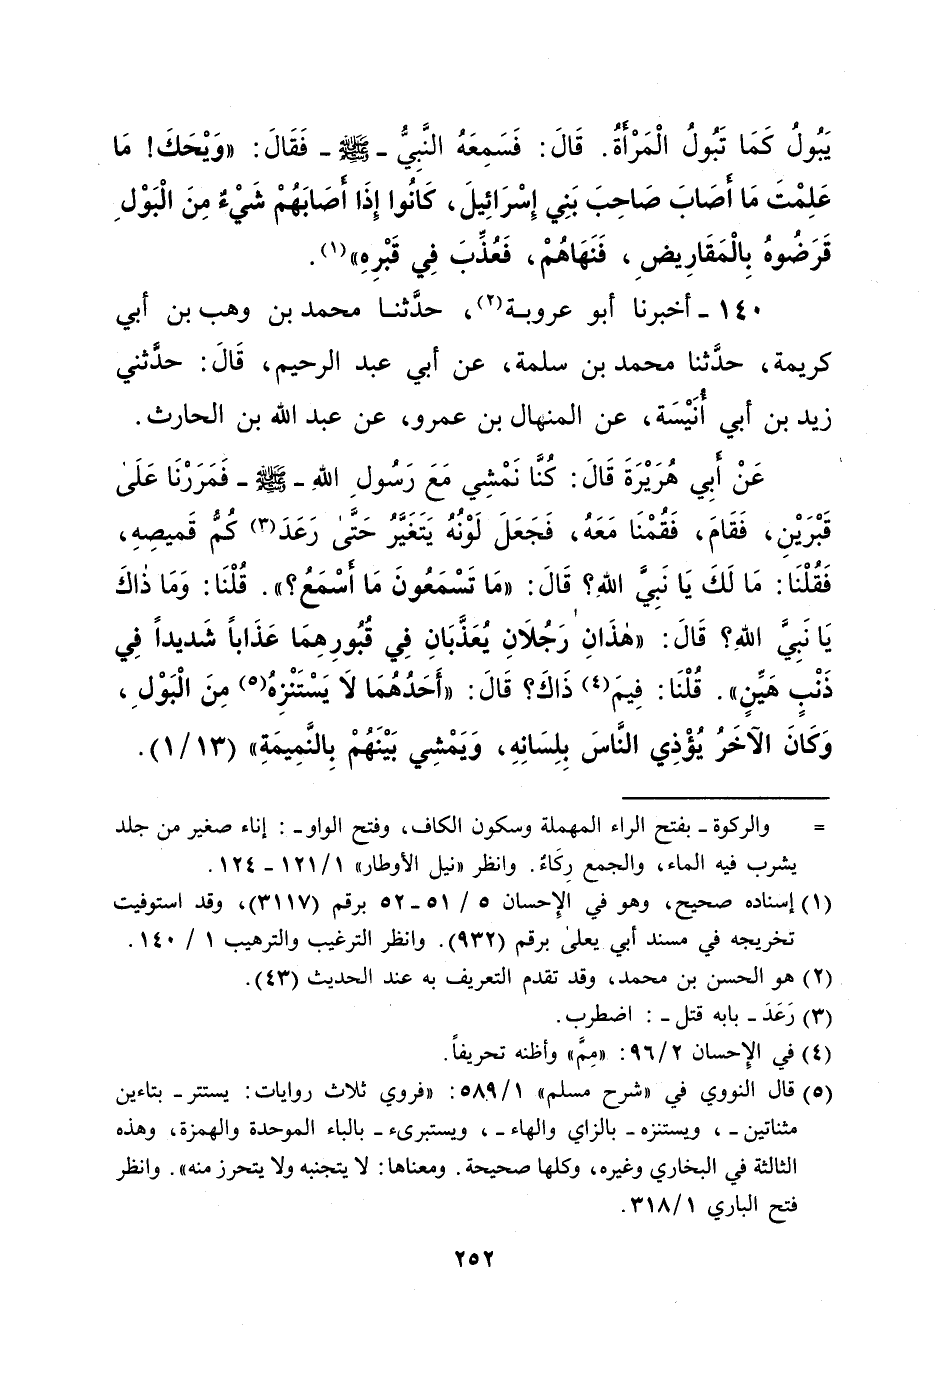 يَبُولُ كَمَا تَبُولُ الْمَرْأَةُ. قَالَ: فَسَمِعَهُ النَّبِيُّ ـ ﷺ ـ فَقَالَ: «وَيْحَكَ! مَا
عَلِمْتَ مَا أَصَابَ صَاحِبَ بَنِي إِسْرَائِيلَ، كَانُوا إِذَا أَصَابَهُمْ شَيْءٌ مِنَ الْبَوْلِ
قَرَضُوهُ بِالْمَقَارِيضِ، فَنَهَاهُمْ، فَعُذِّبَ فِي قَبْرِهِ»(١).
١٤٠ ـ أخبرنا أبو عروبة(٢)، حدَّثنا محمد بن وهب بن أبي
كريمة، حدَّثنا محمد بن سلمة، عن أبي عبد الرحيم، قَالَ: حدَّثني
زيد بن أبي أُنَيْسَة، عن المنهال بن عمرو، عن عبد الله بن الحارث.
عَنْ أَبِي هُرَيْرَةَ قَالَ: كُنَّا نَمْشِي مَعَ رَسُولِ اللهِ ـ ﷺ ـ فَمَرَرْنَا عَلَىٰ
قَبْرَيْنِ، فَقَامَ، فَقُمْنَا مَعَهُ، فَجَعَلَ لَوْنُهُ يَتَغَيَّرُ حَتَّىٰ رَعَدَ(٣) كُمُّ قَمِيصِهِ،
فَقُلْنَا: مَا لَكَ يَا نَبِيَّ اللهِ؟ قَالَ: «مَا تَسْمَعُونَ مَا أَسْمَعُ؟». قُلْنَا: وَمَا ذٰاكَ
يَا نَبِيَّ اللهِ؟ قَالَ: «هٰذَانِ رَجُلَانِ يُعَذَّبَانِ فِي قُبُورِهِمَا عَذَاباً شَدِيداً فِي
ذَنْبٍ هَيِّنٍ». قُلْنَا: فِيمَ(٤) ذَاكَ؟ قَالَ: «أَحَدُهُمَا لَا يَسْتَنْزِهُ(٥) مِنَ الْبَوْلِ،
وَكَانَ الآخَرُ يُؤْذِي النَّاسَ بِلِسَانِهِ، وَيَمْشِي بَيْنَهُمْ بِالنَّمِيمَةِ» (١/١٣).
= والركوة ـ بفتح الراء المهملة وسكون الكاف، وفتح الواو ـ : إناء صغير من جلد
يشرب فيه الماء، والجمع رِكَاءٌ. وانظر «نيل الأوطار» ١٢١/١ ـ ١٢٤.
(١) إسناده صحيح، وهو في الإِحسان ٥ / ٥١ ـ ٥٢ برقم (٣١١٧)، وقد استوفيت
تخريجه في مسند أبي يعلىٰ برقم (٩٣٢). وانظر الترغيب والترهيب ١ / ١٤٠.
(٢) هو الحسن بن محمد، وقد تقدم التعريف به عند الحديث (٤٣).
(٣) رَعَدَ ـ بابه قتل ـ : اضطرب.
(٤) في الإِحسان ٩٦/٢: «مِمَّ» وأظنه تحريفاً.
(٥) قال النووي في «شرح مسلم» ٥٨٩/١: «فروي ثلاث روايات: يستتر ـ بتاءين
مثناتين ـ، ويستنزه ـ بالزاي والهاء ـ، ويستبرىء ـ بالباء الموحدة والهمزة، وهذه
الثالثة في البخاري وغيره، وكلها صحيحة. ومعناها: لا يتجنبه ولا يتحرز منه». وانظر
فتح الباري ٣١٨/١.
٢٥٢